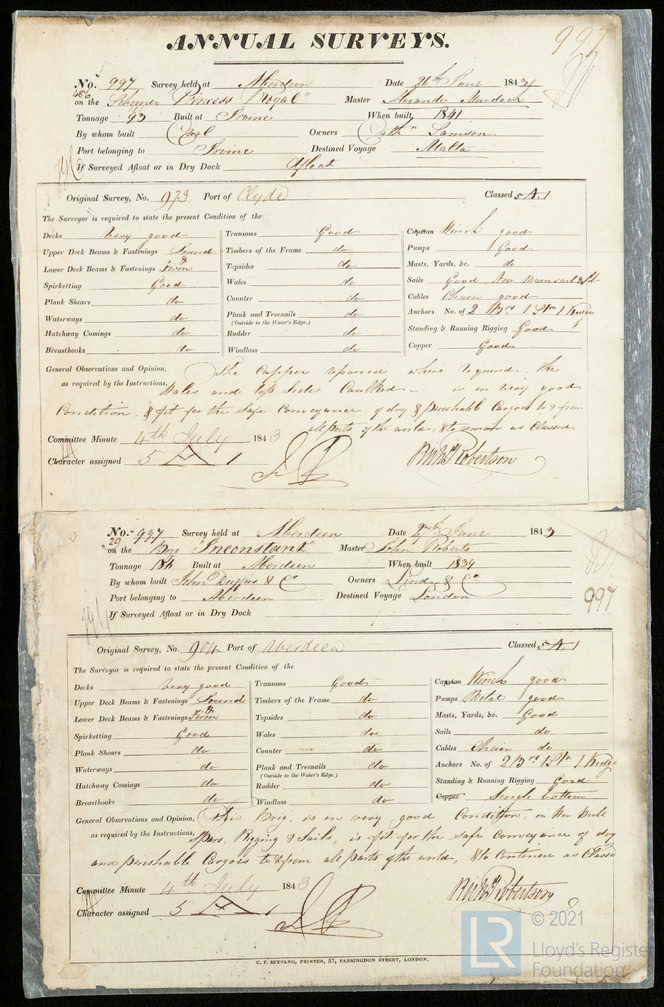 ANNUAL SURVEYS.
997
No. 997 Survey held at Aberdeen Date 26th June 1843
486 on the Schooner "Princess Royal" Master Alexander Murdoch
Tonnage 93 Built at Irvine When built 1841
By whom built Owners Samson
Port belonging to Irvine Destined Voyage Malta
If Surveyed Afloat or in Dry Dock Afloat
Original Survey, No. 973 Port of Clyde Classed 5 A.1
The Surveyor is required to state the present Condition of the
Decks very good
Upper Deck Beams & Fastenings Sound
Lower Deck Beams & Fastenings & Firm
Spirketting Good
Plank Shears do
Waterways do
Hatchway Comings do
Breasthooks do
Transoms Good
Timbers of the Frame do
Topsides do
Wales do
Counter do
Plank and Treenails do
(Outside to the Water's Edge.)
Rudder do
Windlass do
Capstan Winch good
Pumps 1 Good
Masts, Yards, &c. do
Sails Good New
Cables Chain good
Anchors No. of 2 Brs 1 Stm 1 Kedge
Standing & Running Rigging Good
Copper Good
General Observations and Opinion, The Copper repaired where required, the
as required by the Instructions, Wales and top sides Caulked - is in very good
Condition, & fit for the safe Conveyance of dry & perishable Cargoes to & from
all parts of the world & to remain as Classed
Committee Minute 4th July 1843
Character assigned 5 A 1
Robertson
No. 997 Survey held at Aberdeen Date 27th June 1843
29 on the Brig "Inconstant" Master John Roberts
Tonnage 186 Built at Aberdeen When built 1839
By whom built John Duffus & Co Owners & Co
Port belonging to Aberdeen Destined Voyage London
997
If Surveyed Afloat or in Dry Dock
Original Survey, No. 904 Port of Aberdeen Classed 5 A.1
The Surveyor is required to state the present Condition of the
Decks very good
Upper Deck Beams & Fastenings Sound
Lower Deck Beams & Fastenings & Firm
Spirketting Good
Plank Shears do
Waterways do
Hatchway Comings do
Breasthooks do
Transoms Good
Timbers of the Frame do
Topsides do
Wales do
Counter do
Plank and Treenails do
(Outside to the Water's Edge.)
Rudder do
Windlass do
Capstan Winch good
Pumps 1 good
Masts, Yards, &c. Good
Sails do
Cables Chain do
Anchors No. of 2 Brs 1 Stm 1 Kedge
Standing & Running Rigging Good
Copper Single bottom
General Observations and Opinion, This Brig is in very good Condition, in Her Hull
as required by the Instructions, Spars, Rigging & Sails, is fit for the safe Conveyance of dry
and perishable Cargoes to & from all parts of the world, & to Continue as Classed
Committee Minute 4th July 1843
Character assigned 5 A 1
Robertson
C. F. SEYFANG, PRINTER, 57, FARRINGDON STREET, LONDON.
LR
© 2021
Lloyd's Register
Foundation